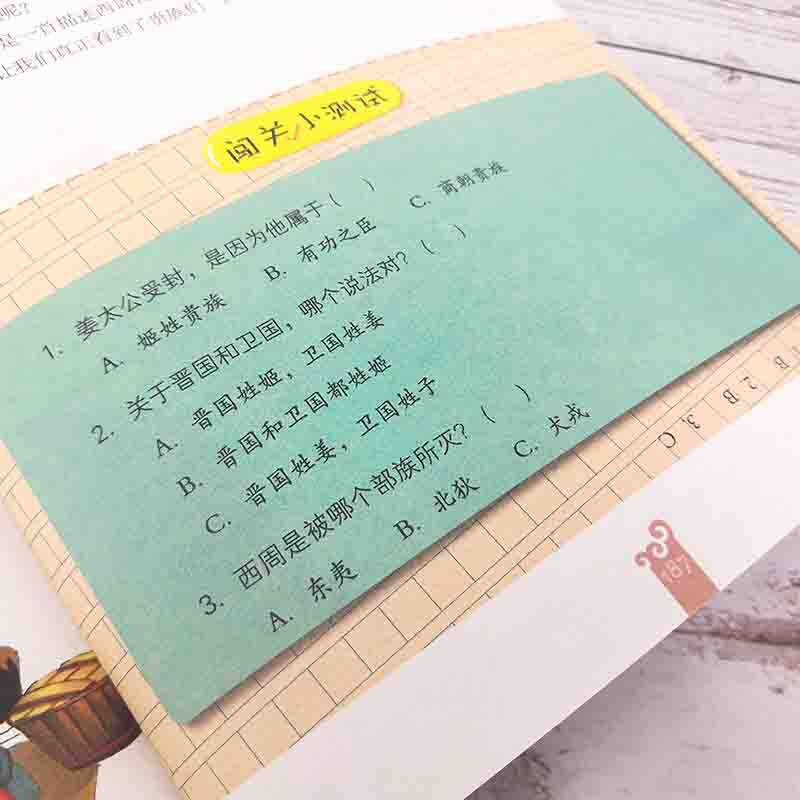 呢？
是一首描述西周
让我们真正看到了贵族们
闯关小测试
1. 姜太公受封，是因为他属于（ ）
A. 姬姓贵族 B. 有功之臣 C. 商朝贵族
2. 关于晋国和卫国，哪个说法对？（ ）
A. 晋国姓姬，卫国姓姜
B. 晋国和卫国都姓姬
C. 晋国姓姜，卫国姓子
3. 西周是被哪个部族所灭？（ ）
A. 东夷 B. 北狄 C. 犬戎
1 B 2. B 3. C
187